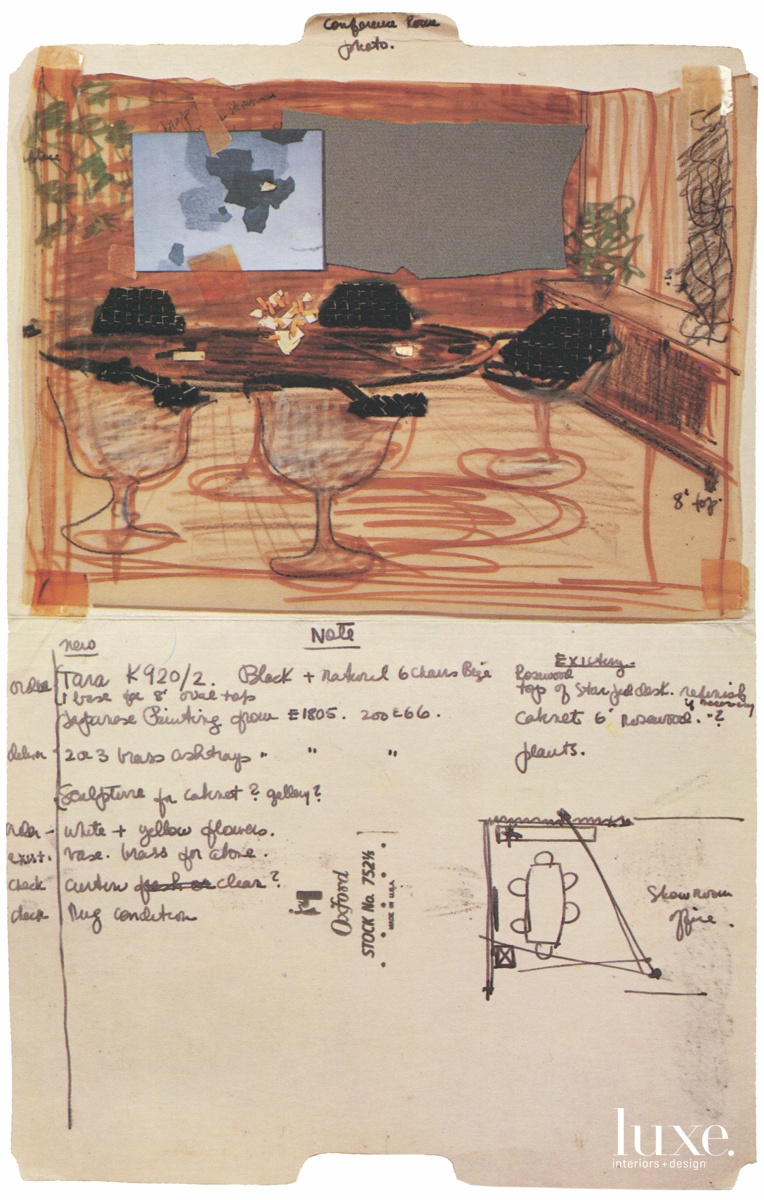 Conference Room
photo.
8' top.
Note
new
order
Tara K920/2. Black + natural 6 chairs Beige
1 base for 8' oval top
Japanese Painting from E1805. 200 E 66.
deliver
2 or 3 brass ashtrays " " "
Sculpture for cabnet? gallery?
order - white + yellow flowers.
exist. vase. brass for above.
check curtain fresh or clean?
check Rug condition
Existing-
Rosewood
top of Star jed desk. refinish
if necessary
cabnets 6' Rosewood. -?
plants.
Showroom
office.
Oxford
STOCK No. 752½
MADE IN U.S.A.
luxe.
interiors+design